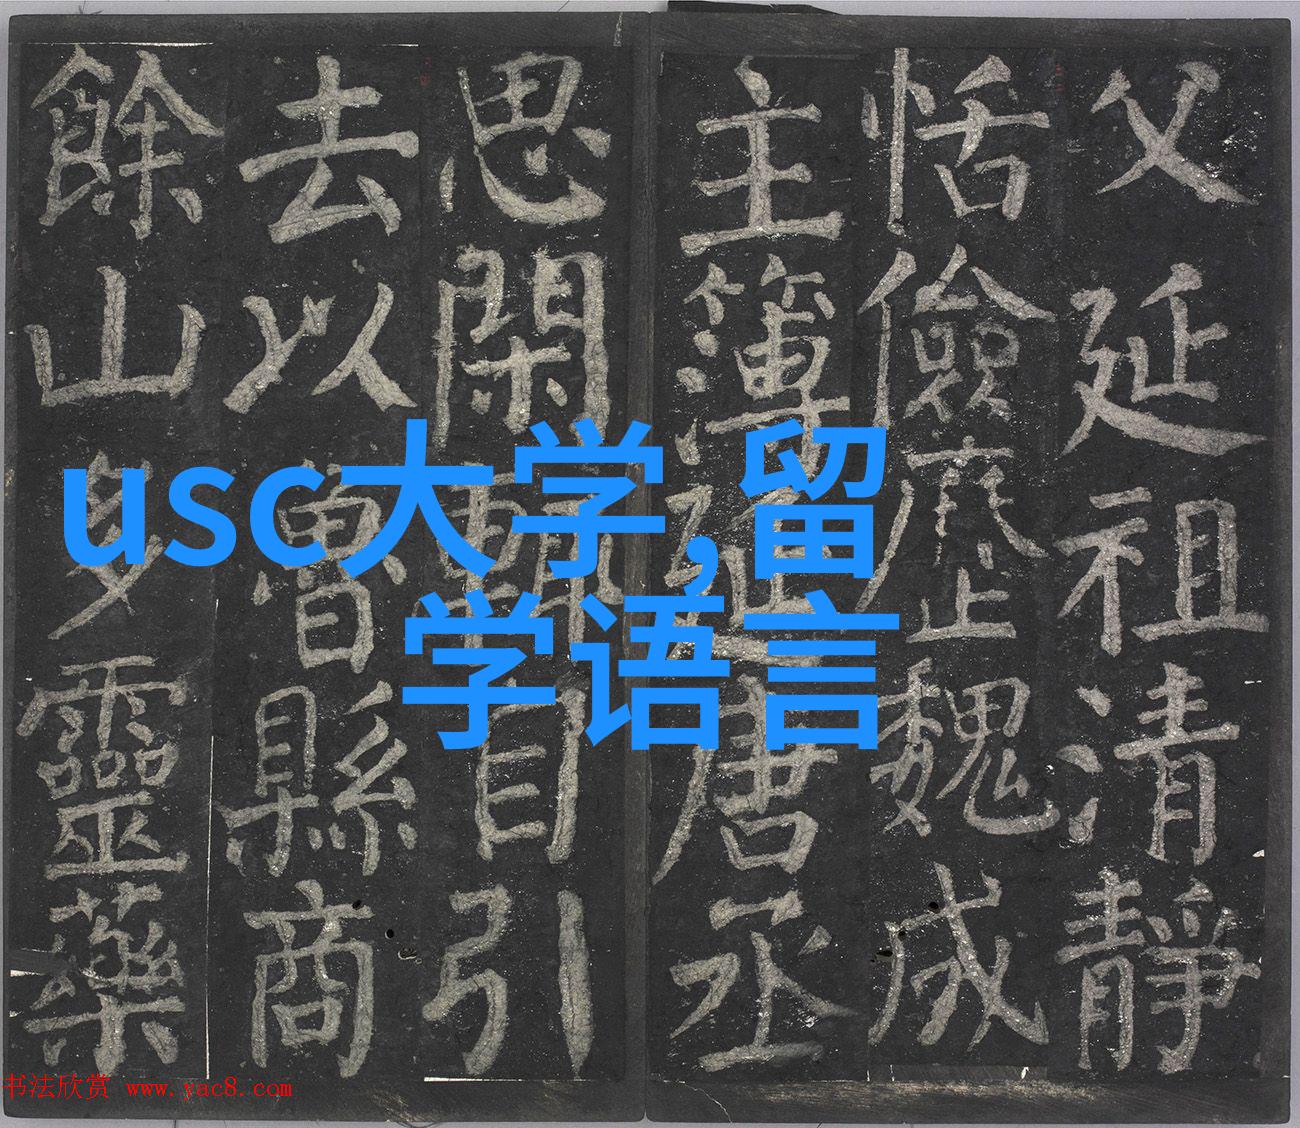 父延祖清靜
恬儉歷止魏成
主簿延唐丞
思閑輒自引
去以曾縣商
餘山多靈藥
usc大学,留
学语言
书法欣赏 www.yac8.com